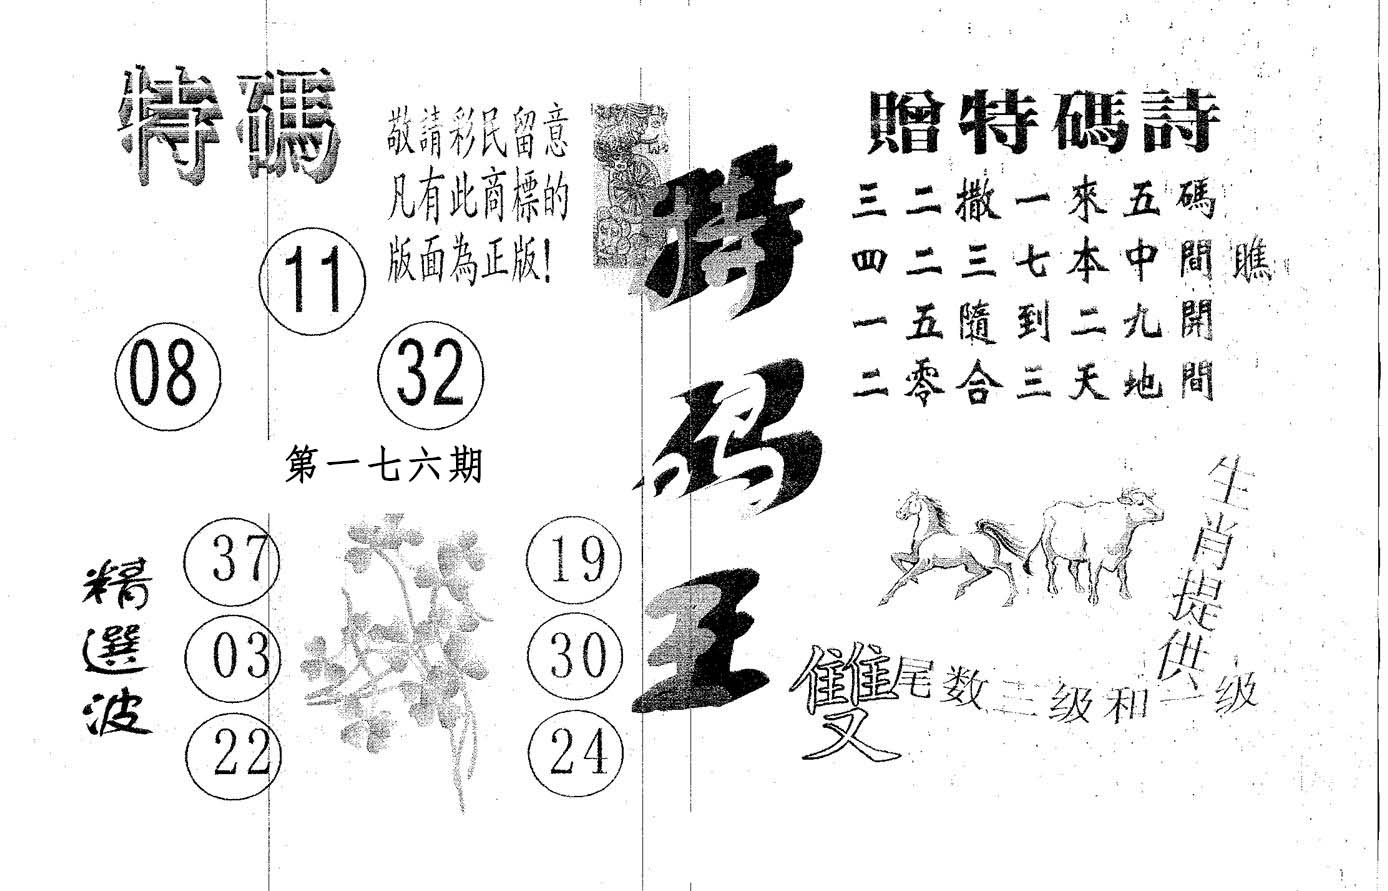 特碼
敬請彩民留意
凡有此商標的
版面為正版!
11
08
32
第一七六期
精選波
37
03
22
19
30
24
特码王
贈特碼詩
三二撒一來五碼
四二三七本中間瞧
一五隨到二九開
二零合三天地間
生肖提供
雙尾数二级和一级